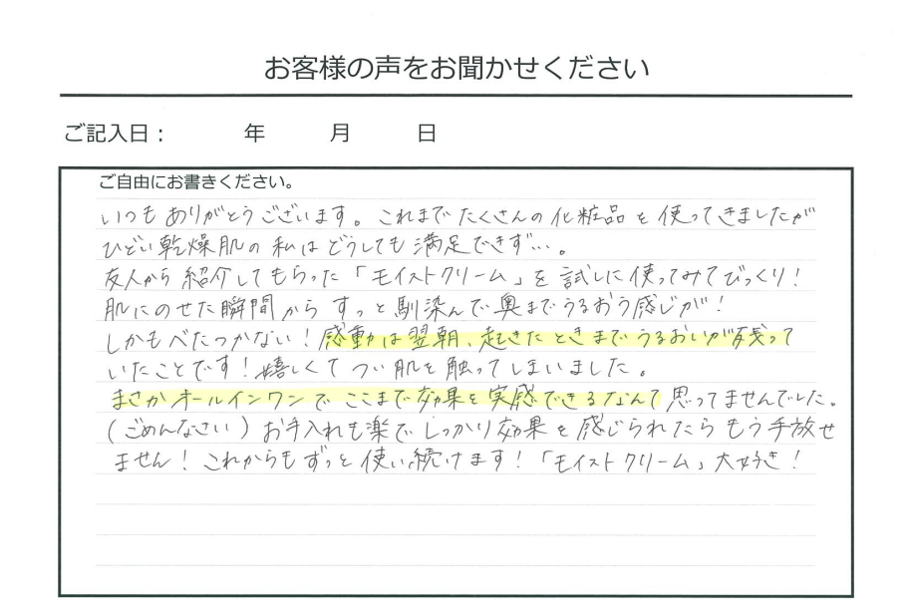 お客様の声をお聞かせください
ご記入日：　　　年　　　月　　　日
ご自由にお書きください。
いつもありがとうございます。これまでたくさんの化粧品を使ってきましたが
ひどい乾燥肌の私はどうしても満足できず…。
友人から紹介してもらった「モイストクリーム」を試しに使ってみてびっくり！
肌にのせた瞬間からすっと馴染んで奥までうるおう感じが！
しかもべたつかない！感動は翌朝、起きたときまでうるおいが残って
いたことです！嬉しくてつい肌を触ってしまいました。
まさかオールインワンでここまで効果を実感できるなんて思ってませんでした。
（ごめんなさい）お手入れも楽でしっかり効果を感じられたらもう手放せ
ません！これからもずっと使い続けます！「モイストクリーム」大好き！